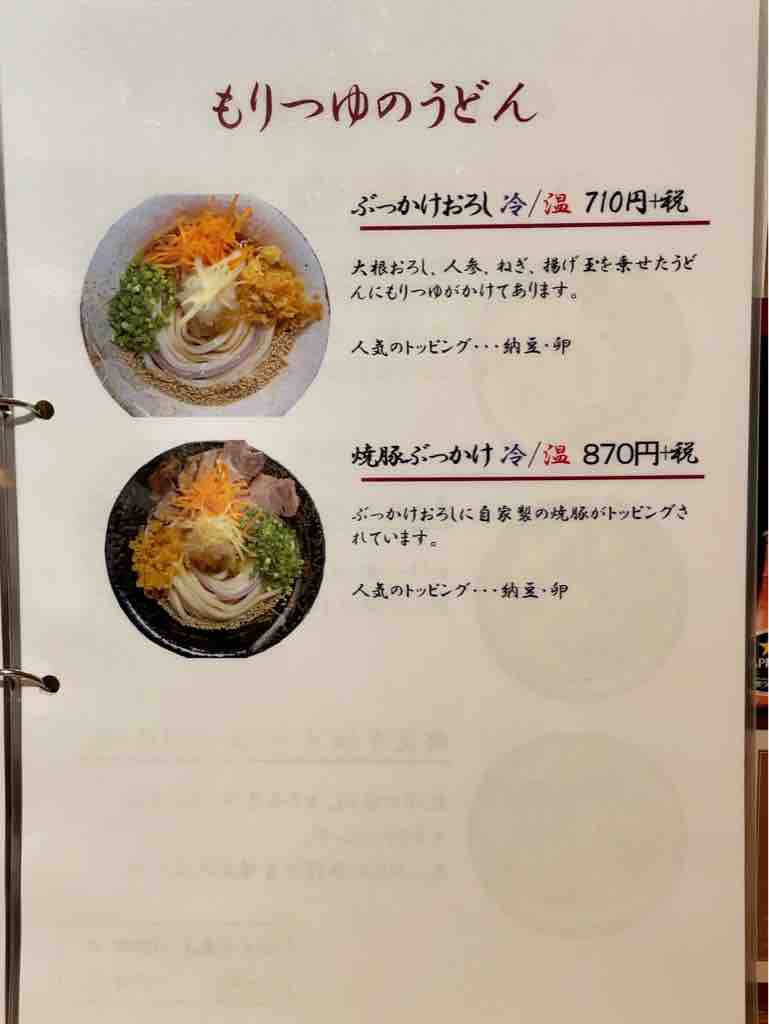 もりつゆのうどん
ぶっかけおろし 冷/温 710円+税
大根おろし、人参、ねぎ、揚げ玉を乗せたうど
んにもりつゆがかけてあります。
人気のトッピング・・・納豆・卵
焼豚ぶっかけ 冷/温 870円+税
ぶっかけおろしに自家製の焼豚がトッピングさ
れています。
人気のトッピング・・・納豆・卵